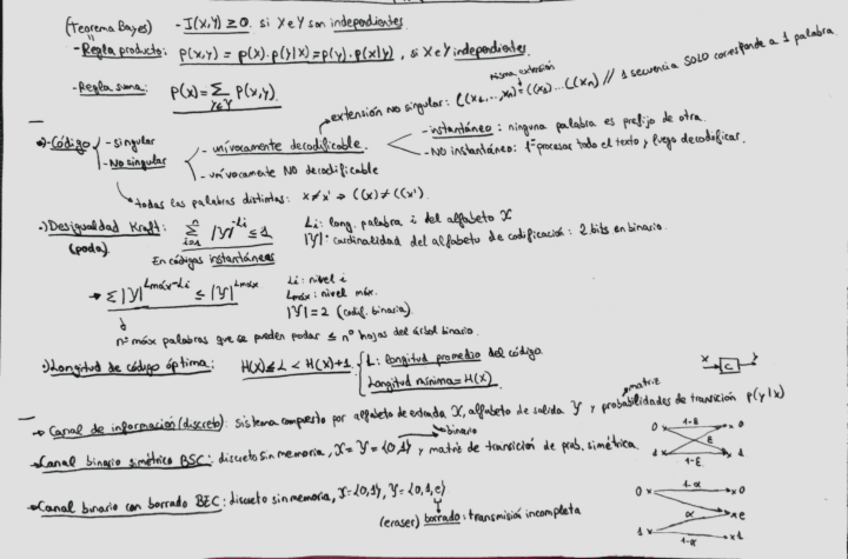 (Teorema Bayes) - I(X,Y) ≥ 0. si X e Y son independientes.
- Regla producto: p(x,y) = p(x)·p(y|x) = p(y)·p(x|y), si X e Y independientes.
- Regla suma: p(x) = Σ p(x,y)
y∈Y
misma extensión
→ extensión NO singular: C(x₁,...,xₙ) = C(x₁)...C(xₙ) // 1 secuencia SOLO corresponde a 1 palabra
·) Código - singular - unívocamente decodificable. - instantáneo: ninguna palabra es prefijo de otra.
- No singular - unívocamente NO decodificable - NO instantáneo: 1º procesar todo el texto y luego decodificar.
todas las palabras distintas: x ≠ x' ⇒ C(x) ≠ C(x').
·) Desigualdad Kraft: Σ |Y|^-Li ≤ 1 Li: long. palabra i del alfabeto X
i=1 n
(poda) |Y|: cardinalidad del alfabeto de codificación: 2 bits en binario.
En códigos instantáneos
→ Σ |Y|^Lmáx-Li ≤ |Y|^Lmáx Li: nivel i
Lmáx: nivel máx.
|Y| = 2 (codif. binaria).
nº máx palabras que se pueden podar ≤ nº hojas del árbol binario.
·) Longitud de código óptima: H(X) ≤ L < H(X)+1. L: longitud promedio del código.
Longitud mínima = H(X)
x → C → y
matriz
→ Canal de información (discreto): sistema compuesto por alfabeto de entrada X, alfabeto de salida Y y probabilidades de transición p(y|x)
binario
→ Canal binario simétrico BSC: discreto sin memoria, X = Y = {0,1} y matriz de transición de prob. simétrica
0 1-ε 0
ε
1 1-ε 1
→ Canal binario con borrado BEC: discreto sin memoria, X = {0,1}, Y = {0,1,e}
(eraser) borrado: transmisión incompleta
0 1-α 0
α e
1 1-α 1